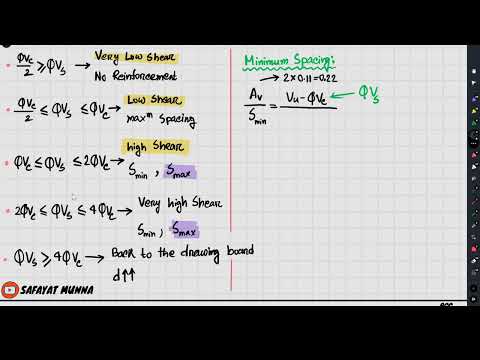 φVc/2 ≥ φVs → Very Low Shear
No Reinforcement
φVc/2 ≤ φVs ≤ φVc → Low Shear
maxᵐ Spacing
φVc ≤ φVs ≤ 2φVc → high Shear
Smin , Smax
2φVc ≤ φVs ≤ 4φVc → Very high Shear
Smin , Smax
φVs ≥ 4φVc → Back to the drawing board
d↑↑
Minimum Spacing:
→ 2×0.11=0.22
Av/Smin = Vu-φVc/ ← φVs
SAFAYAT MUNNA